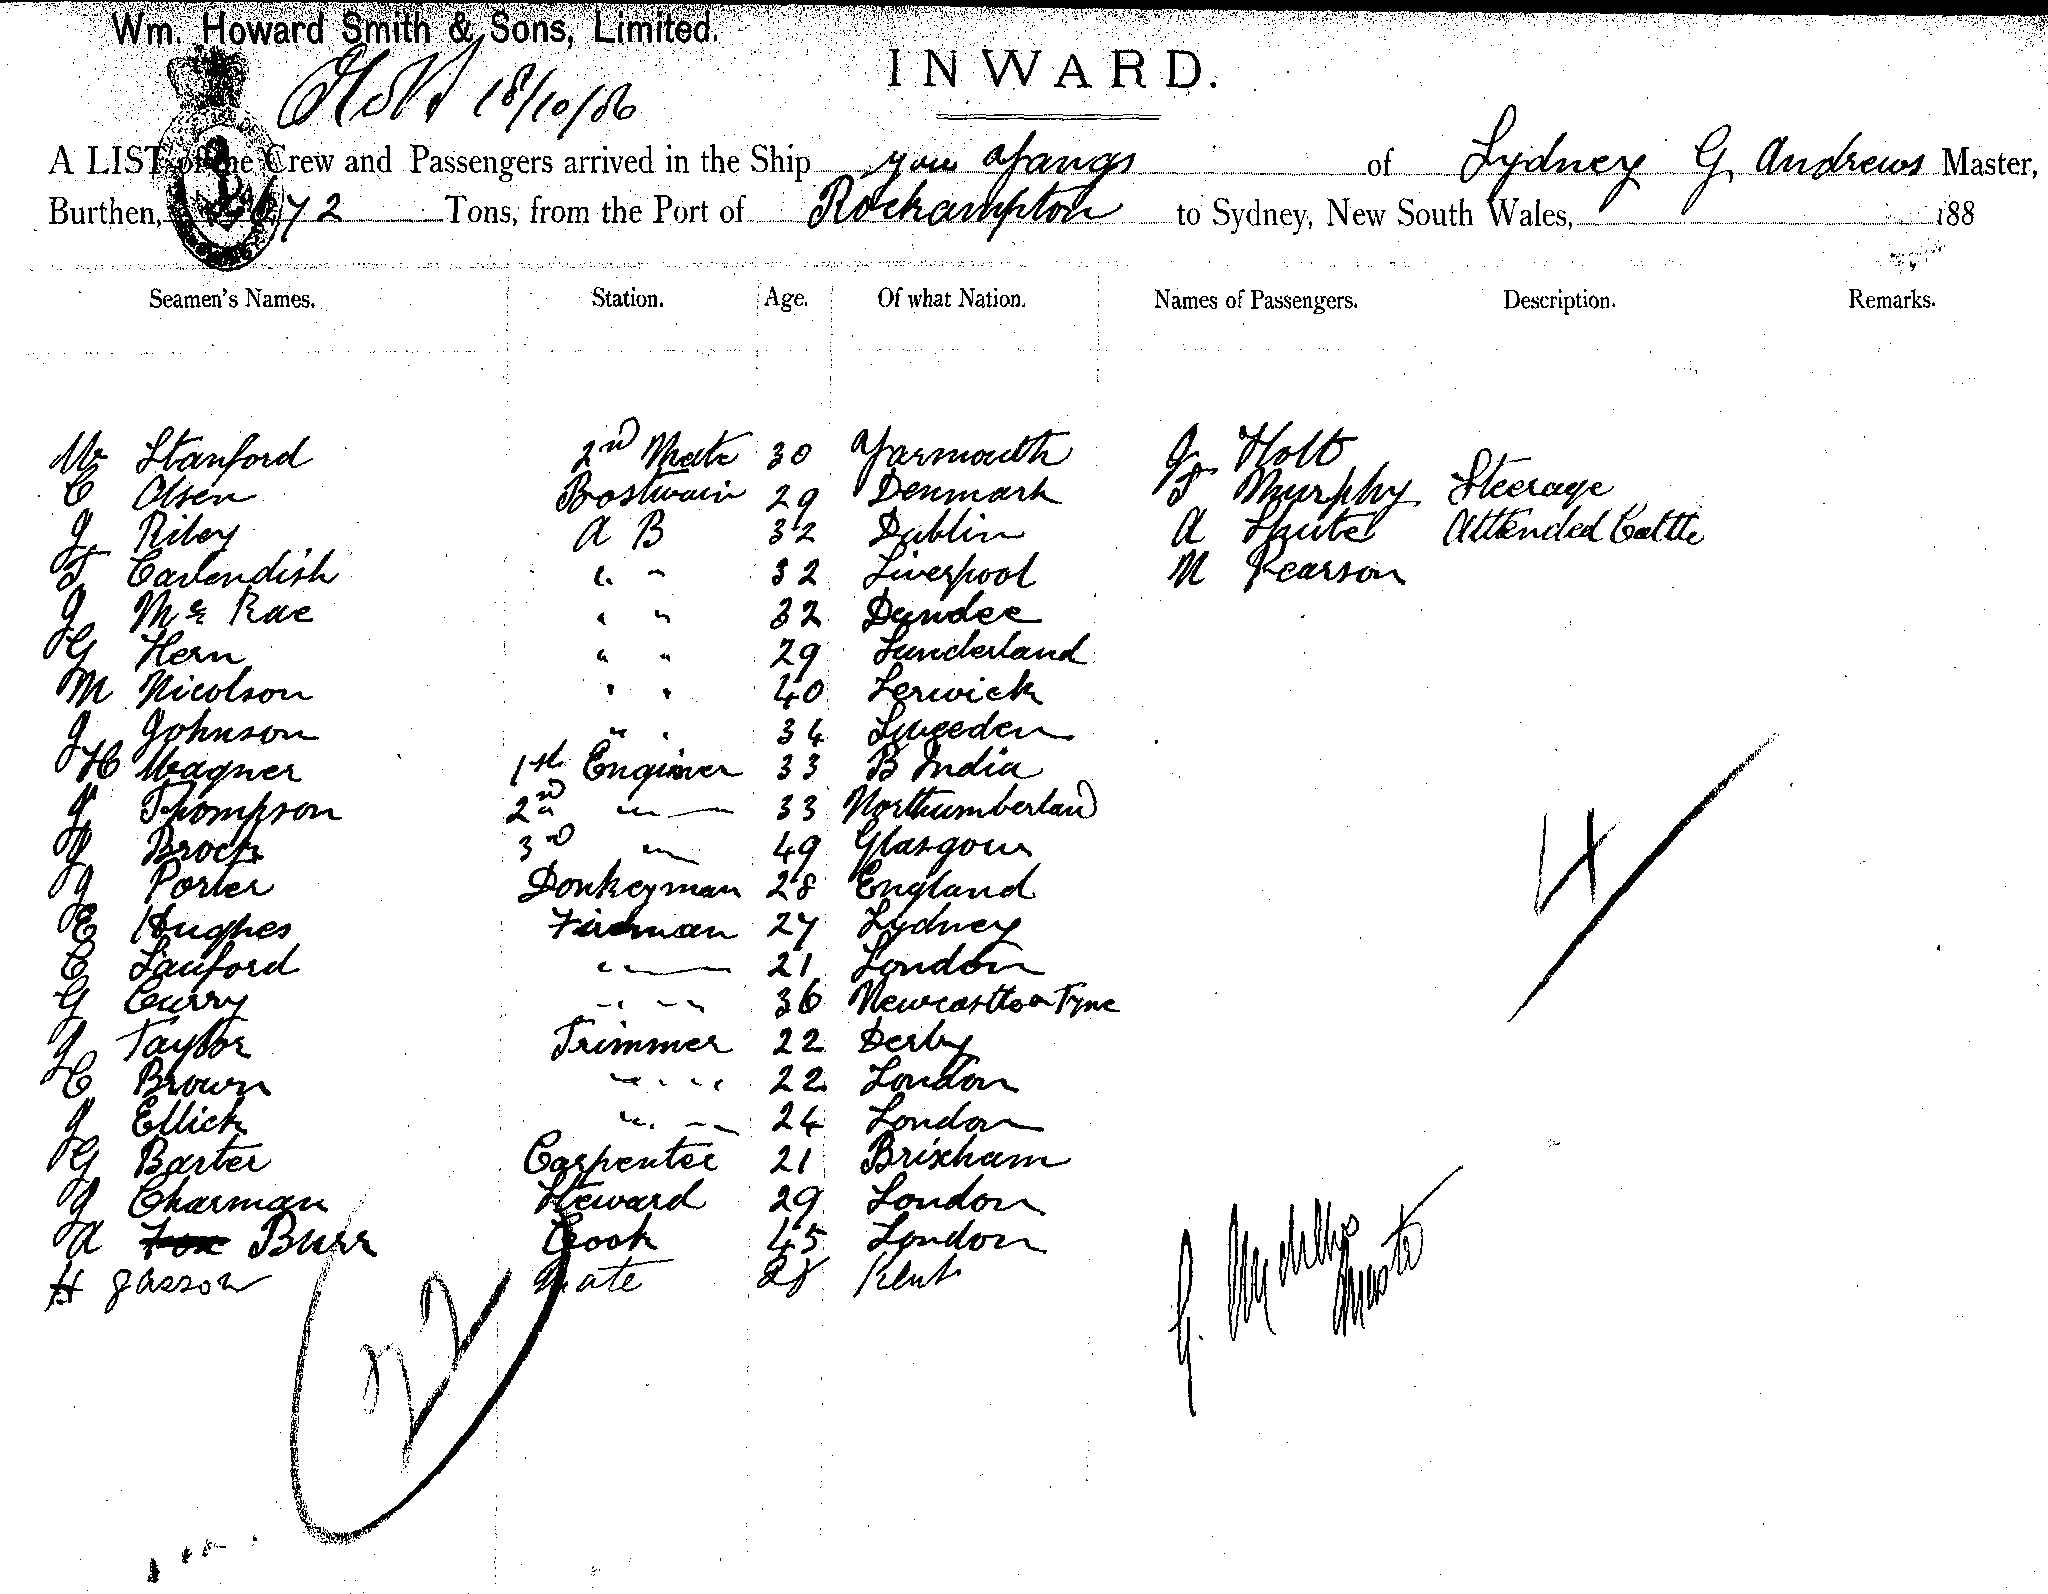 Wm. Howard Smith & Sons, Limited.
18/10/86
INWARD.
A LIST of the Crew and Passengers arrived in the Ship You Yangs of Sydney G Andrews Master,
Burthen, 672 Tons, from the Port of Rockhampton to Sydney, New South Wales, 188
Seamen's Names. Station. Age. Of what Nation. Names of Passengers. Description. Remarks.
W Stanford 2nd Mate 30 Yarmouth J Holt
C Olsen Boatswain 29 Denmark T Murphy Steerage
J Riley A B 32 Dublin A Shute Attended Cattle
T Cavendish " " 32 Liverpool M Pearson
J McRae " " 32 Dundee
G Hern " " 29 Sunderland
M Nicolson " " 40 Lerwick
J Johnson " " 34 Sweeden
H Wagner 1st Enginer 33 B India
J Thompson 2nd " 33 Northumberland
J Brock 3rd " 49 Glasgow
J Porter Donkeyman 28 England
E Hughes Fireman 27 Sydney
C Sanford " 21 London
G Curry " " 36 Newcastle on Tyne
J Taylor Trimmer 22 Derby
C Brown " " 22 London
J Ellick " " 24 London
G Barter Carpenter 21 Brixham
J Charman Steward 29 London
A Fox Burr Cook 45 London
H Jasson Mate 28 Kent
4
22
G.